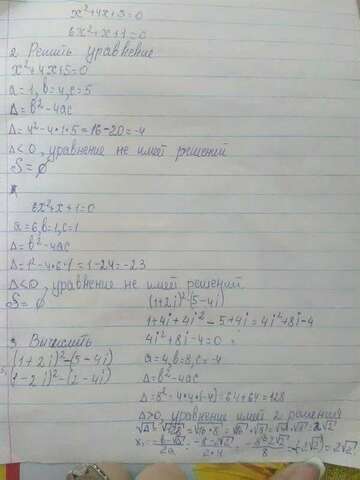 x²+4x+5=0
6x²+x+1=0
2. Решить уравнение
x²+4x+5=0
a=1, b=4, c=5
Δ=b²-4ac
Δ=4²-4•1•5=16-20=-4
Δ<0, уравнение не имей решений
S=∅
6x²+x+1=0
a=6, b=1, c=1
Δ=b²-4ac
Δ=1²-4•6•1=1-24=-23
Δ<0, уравнение не имей решений
S=∅
3. Вычислить
(1+2i)²-(5-4i)
(1-2i)²-(2-4i)
(1+2i)²-(5-4i)
1+4i+4i²-5+4i=4i²+8i-4
4i²+8i-4=0
a=4, b=8, c=-4
Δ=b²-4ac
Δ=8²-4•4•(-4)=64+64=128
Δ>0, уравнение имей 2 решения